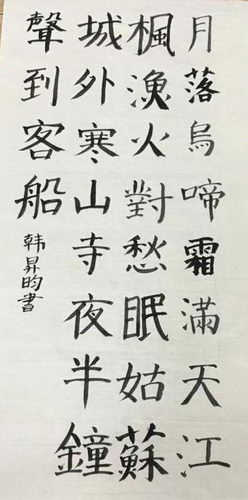 月落烏啼霜滿天江
楓漁火對愁眠姑蘇
城外寒山寺夜半鐘
聲到客船
韩昇昀書